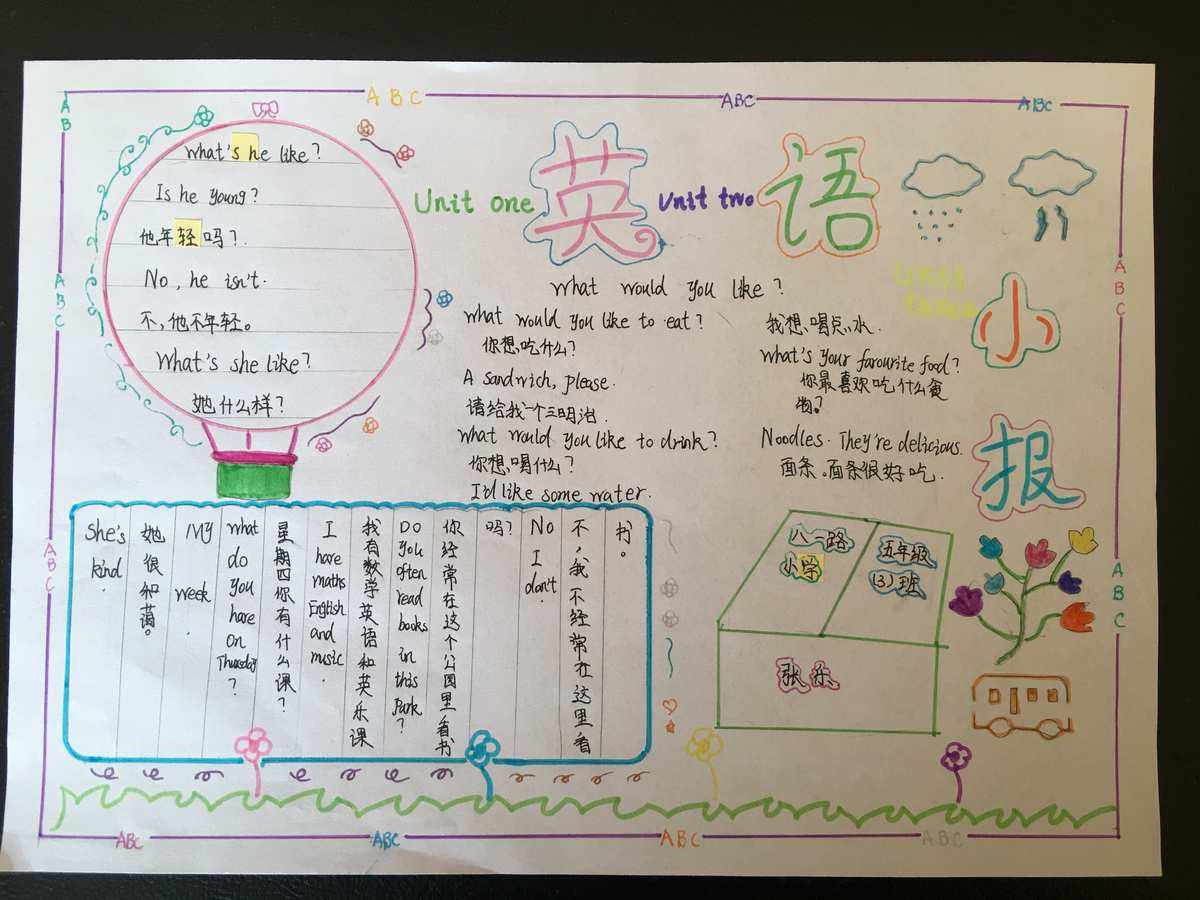 ABC
ABC
ABC
AB
ABC
ABC
ABC
ABC
Unit one
英
Unit two
语
Unit three
小
报
what's he like?
Is he young?
他年轻吗?
No, he isn't.
不,他不年轻。
What's she like?
她什么样?
What would you like?
what would you like to eat?
你想吃什么?
A sandwich, please.
请给我一个三明治.
what would you like to drink?
你想喝什么?
I'd like some water.
我想喝点水.
what's your farourite food?
你最喜欢吃什么食
物?
Noodles. They're delicious.
面条。面条很好吃.
she's kind.
她很和蔼。
My week.
what do you hare on Thursday?
星期四你有什么课?
I hare maths English and music.
我有数学英语和英乐课
Do you often read books in this Park?
你经常在这个公园里看书
吗?
No I don't.
不,我不经常在这里看
书。
八一路
小学
五年级
(3)班
张乐
ABC
ABC
ABC
ABC